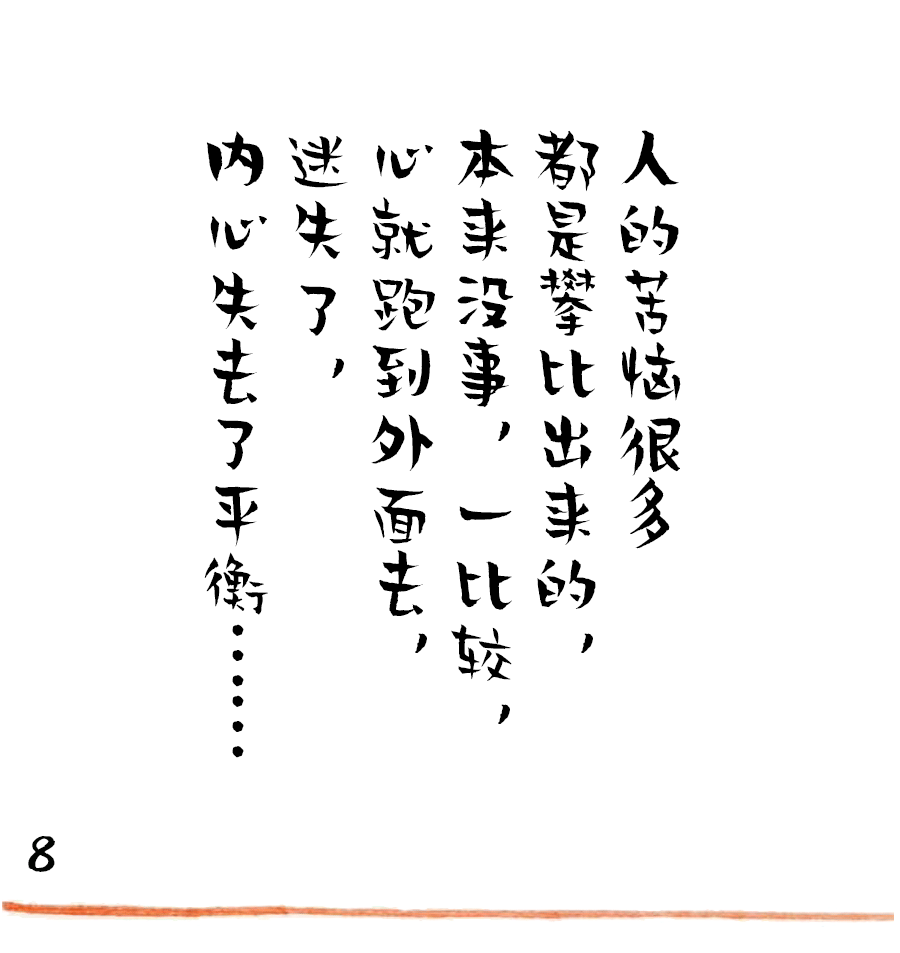 人的苦恼很多
都是攀比出来的，
本来没事，一比较，
心就跑到外面去，
迷失了，
内心失去了平衡……
8